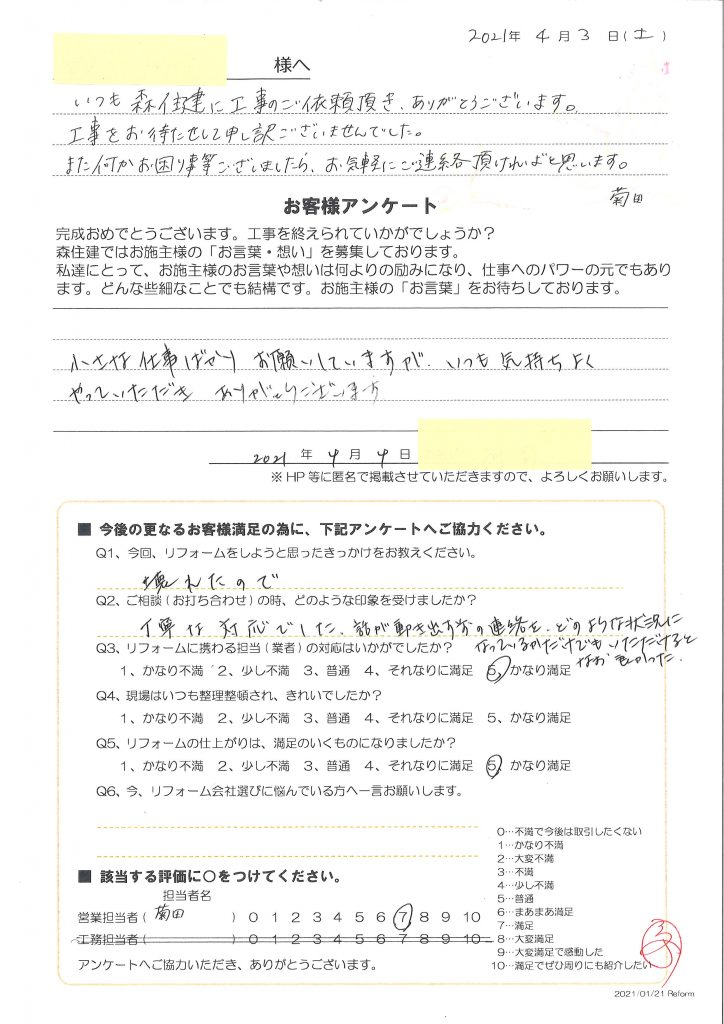 2021年 4月 3日(土)
様へ
いつも 森住建に工事のご依頼頂き、ありがとうございます。
工事をお待たせして申し訳ございませんでした。
また何かお困り事等ございましたら、お気軽にご連絡頂ければと思います。
菊田
お客様アンケート
完成おめでとうございます。工事を終えられていかがでしょうか？
森住建ではお施主様の「お言葉・想い」を募集しております。
私達にとって、お施主様のお言葉や想いは何よりの励みになり、仕事へのパワーの元でもあり
ます。どんな些細なことでも結構です。お施主様の「お言葉」をお待ちしております。
小さな仕事ばかり お願いしていますが、いつも気持ちよく
やっていただき ありがとうございます
2021 年 4 月 4 日
※HP等に匿名で掲載させていただきますので、よろしくお願いします。
■ 今後の更なるお客様満足の為に、下記アンケートへご協力ください。
Q1、今回、リフォームをしようと思ったきっかけをお教えください。
壊れたので
Q2、ご相談(お打ち合わせ)の時、どのような印象を受けましたか？
丁寧な対応でした、話が動き出す前の連絡を、どのような状況に
なっているかだけでもいただけると
なお良かった。
Q3、リフォームに携わる担当(業者)の対応はいかがでしたか？
1、かなり不満 2、少し不満 3、普通 4、それなりに満足 5、かなり満足
Q4、現場はいつも整理整頓され、きれいでしたか？
1、かなり不満 2、少し不満 3、普通 4、それなりに満足 5、かなり満足
Q5、リフォームの仕上がりは、満足のいくものになりましたか？
1、かなり不満 2、少し不満 3、普通 4、それなりに満足 5、かなり満足
Q6、今、リフォーム会社選びに悩んでいる方へ一言お願いします。
■ 該当する評価に○をつけてください。
担当者名
営業担当者( 菊田 ) 0 1 2 3 4 5 6 7 8 9 10
工務担当者( ) 0 1 2 3 4 5 6 7 8 9 10
アンケートへご協力いただき、ありがとうございます。
0…不満で今後は取引したくない
1…かなり不満
2…大変不満
3…不満
4…少し不満
5…普通
6…まあまあ満足
7…満足
8…大変満足
9…大変満足で感動した
10…満足でぜひ周りにも紹介したい
2021/01/21 Reform